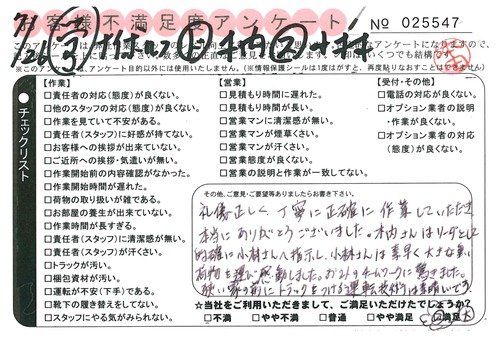 お客様不満足度アンケート
No 025547
チェックリスト
【作業】
□責任者の対応(態度)が良くない。
□他のスタッフの対応(態度)が良くない。
□作業を見ていて不安がある。
□責任者(スタッフ)に好感が持てない。
□お客様への挨拶が出来ていない。
□ご近所への挨拶・気遣いが無い。
□作業開始前の内容確認がなかった。
□作業開始時間が遅れた。
□荷物の取り扱いが雑である。
□お部屋の養生が出来ていない。
□作業時間が長すぎる。
□責任者(スタッフ)に清潔感が無い。
□責任者(スタッフ)が汗くさい。
□トラックが汚い。
□梱包資材が汚い。
□運転が不安(下手)である。
□靴下の履き替えをしてない。
□スタッフにやる気がみられない。
【営業】
□見積もり時間に遅れた。
□見積もり時間が長い。
□営業マンに清潔感が無い。
□営業マンが煙草くさい。
□営業マンが汗くさい。
□営業態度が良くない。
□営業の説明と作業が一致してない。
【受付・その他】
□電話の対応が良くない。
□オプション業者の説明・作業が良くない。
□オプション業者の対応(態度)が良くない。
その他、ご意見・ご要望等ありましたらお書き下さい。
礼儀正しく丁寧に正確に作業していただき
本当にありがとうございました。木内さんはリーダーとして
的確に小林さんへ指示し、小林さんは素早く大きな重い
荷物を運び感動しました。お二人のチームワークに驚きました。
狭い家の前にトラックをつける運転技術は素晴しいです。
☆当社をご利用いただきまして、ご満足いただけたでしょうか?
□不満 □やや不満 □普通 □やや満足 □満足